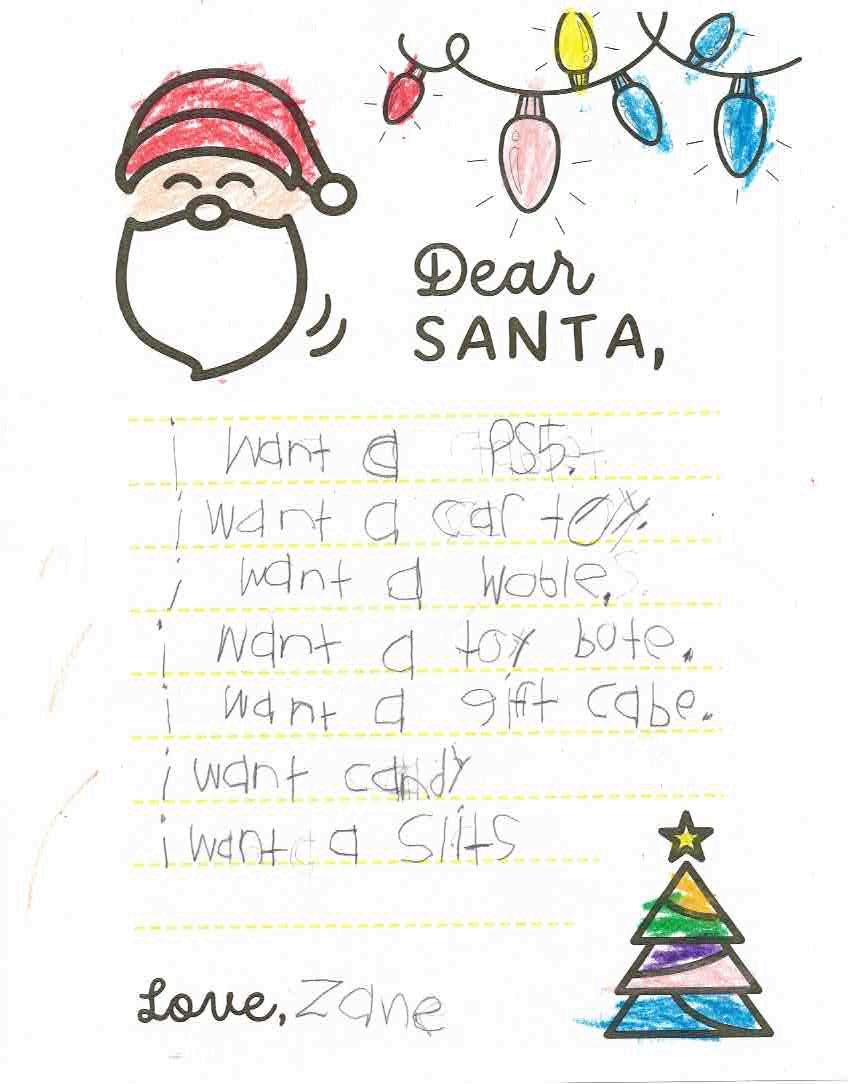 Dear
SANTA,
i want a PS5.
i want a car toy.
i want a woble.
i want a toy bote.
i want a gift cabe.
i want candy
i want a Slits
Love, Zane